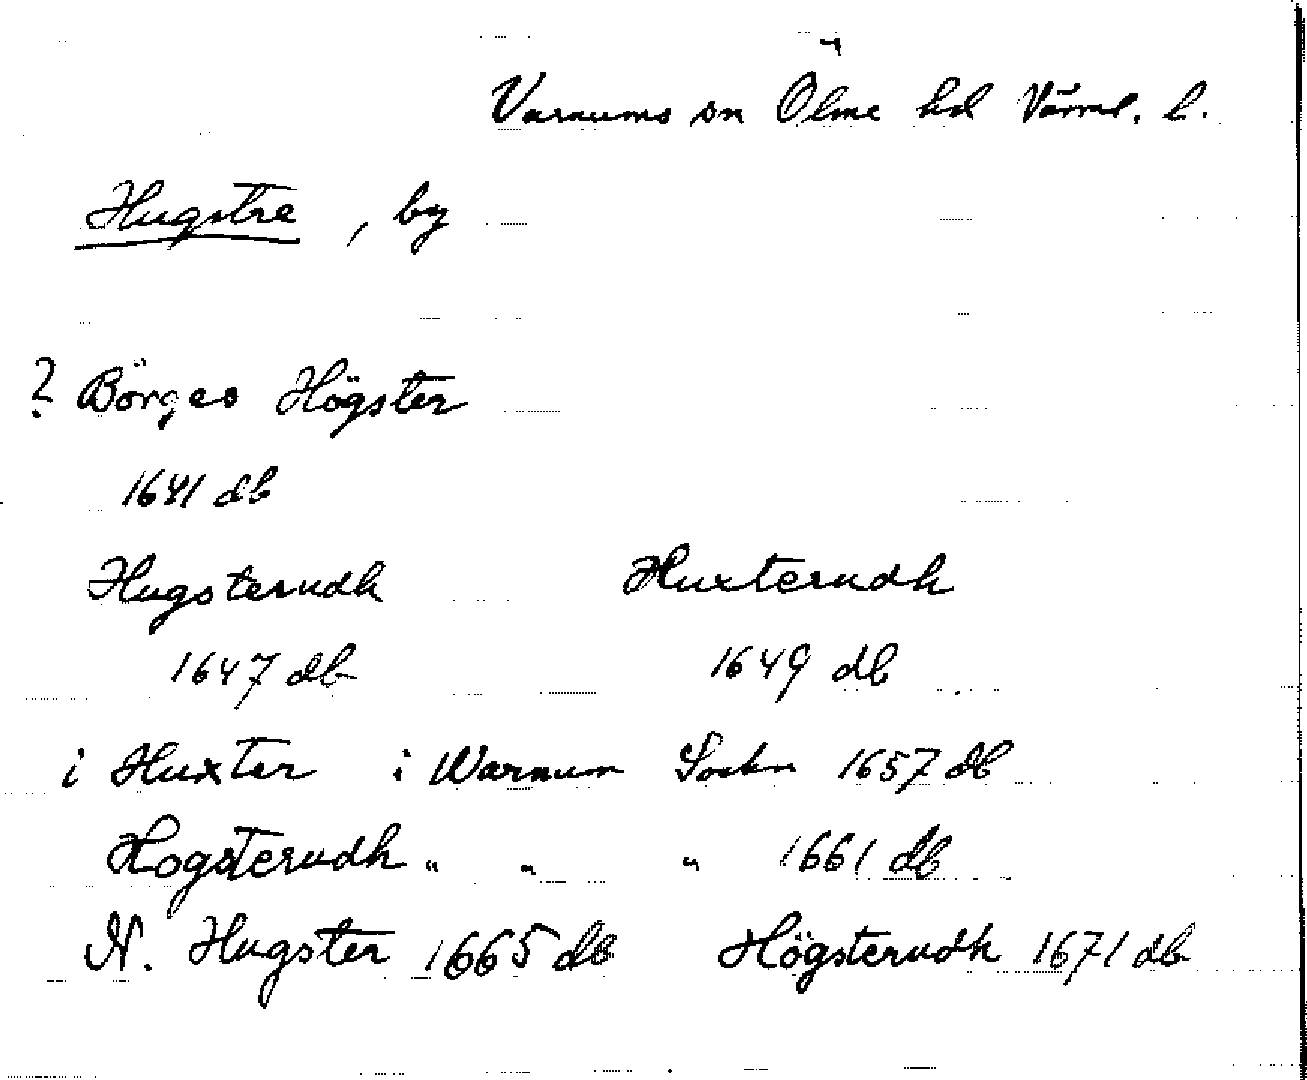 Varnums sn Ölme hd Värml. l.
Hugstre, by
? Börges Högster
1641 db
Hugsterudh Huxterudh
1647 db 1649 db
i Huxter i Warnum Sockn 1657 db
Hogsterudh " " " 1661 db
N. Hugster 1665 db Högsterudh 1671 db